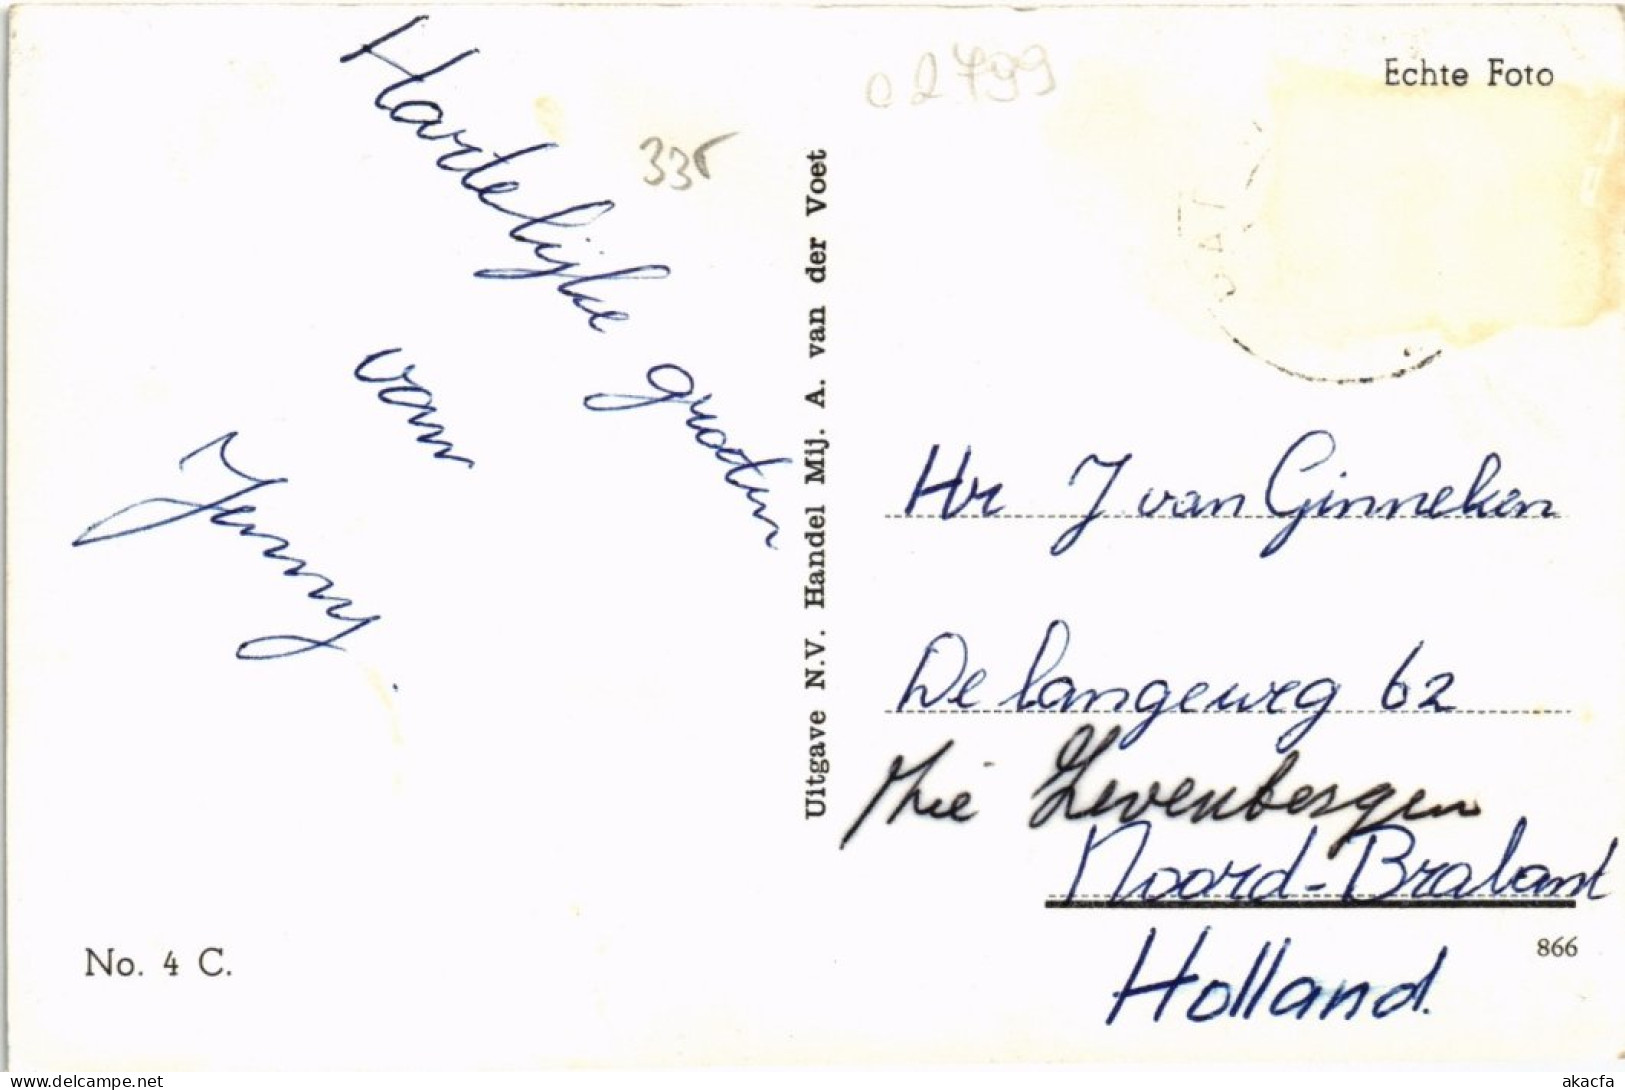 Hartelijke groeten
van
Jenny.
335
No. 4 C.
Uitgave N.V. Handel Mij. A. van der Voet
02799
Echte Foto
Hr J van Ginneken
De langeweg 62
Zevenbergen
Noord-Brabant
Holland.
866
akacfa